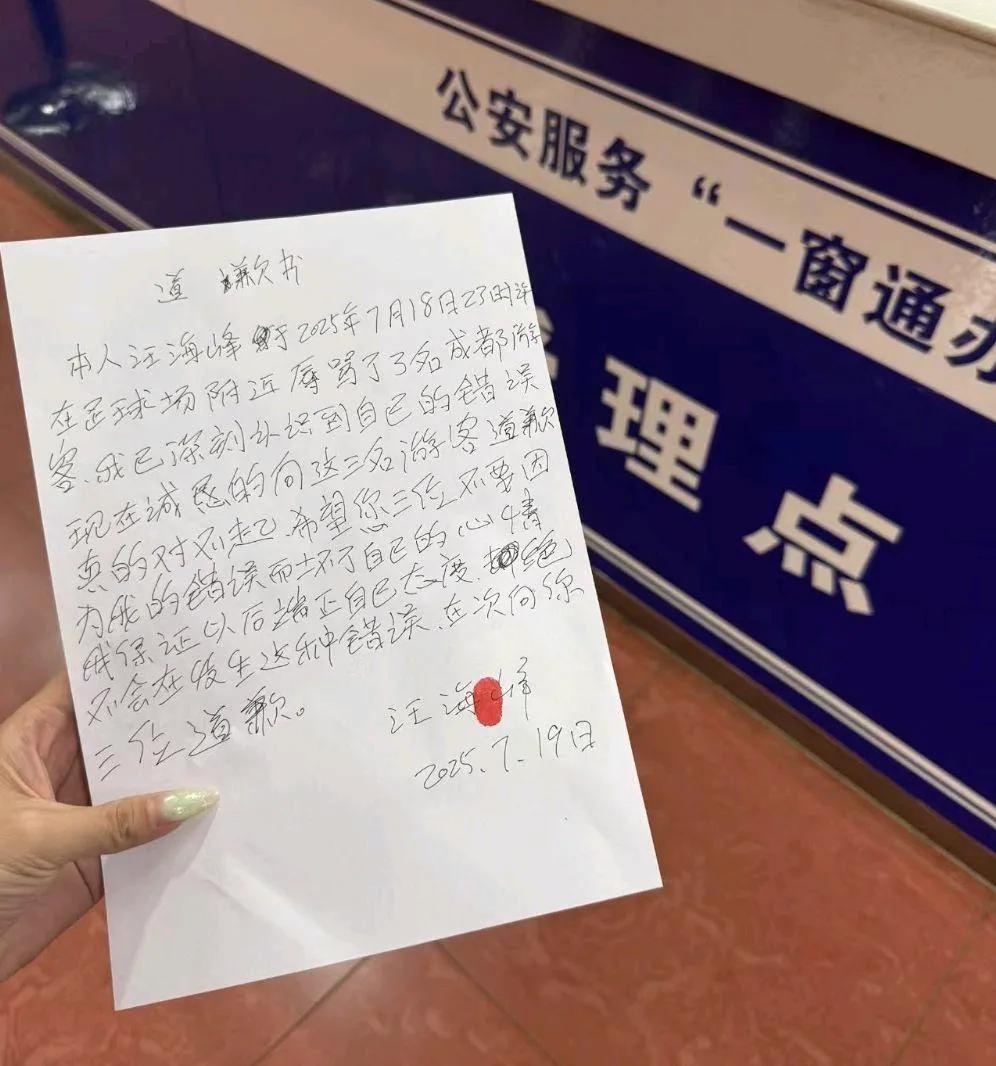 公安服务“一窗通办
理点
道歉书
本人汪海峰于2025年7月18日23时许
在足球场附近辱骂了3名成都游
客、我已深刻认识到自己的错误
现在诚恳的向这三名游客道歉
真的对不起、希望您三位不要因
为我的错误而坏了自己的心情
我保证以后端正自己态度、绝
不会在发生这种错误、在次向你
三位道歉。
汪海峰
2025.7.19日